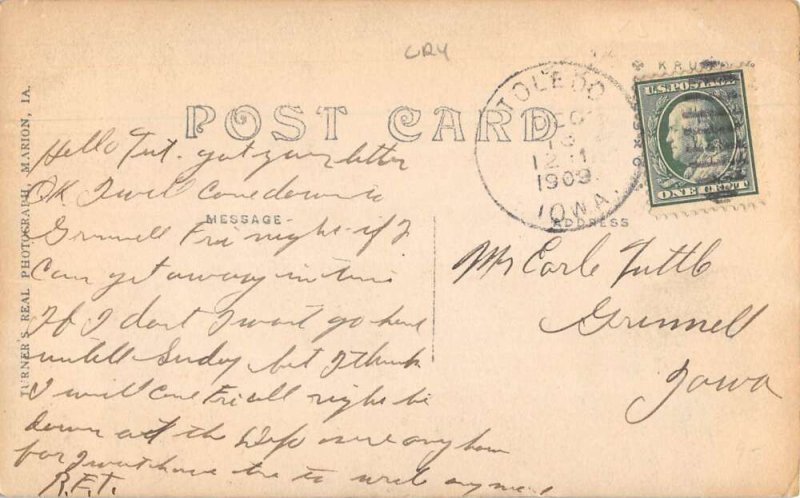 CRY
KRUX
TOLEDO
13
1909
IOWA.
U.S. POSTAGE
ONE CENT
POST CARD
MESSAGE
ADDRESS
TURNER'S REAL PHOTOGRAPH, MARION, IA.
Hello Tut. got your letter
OK I will come down to
Grinnell Fri night if I
Can get away in time
If I dont I wont go home
untill Sunday but I think
I will come Fri all right be
down at the Depo sure any how
for I wont have time to write any more
R.F.T.
Mr Earle Tuttle
Grinnell
Iowa